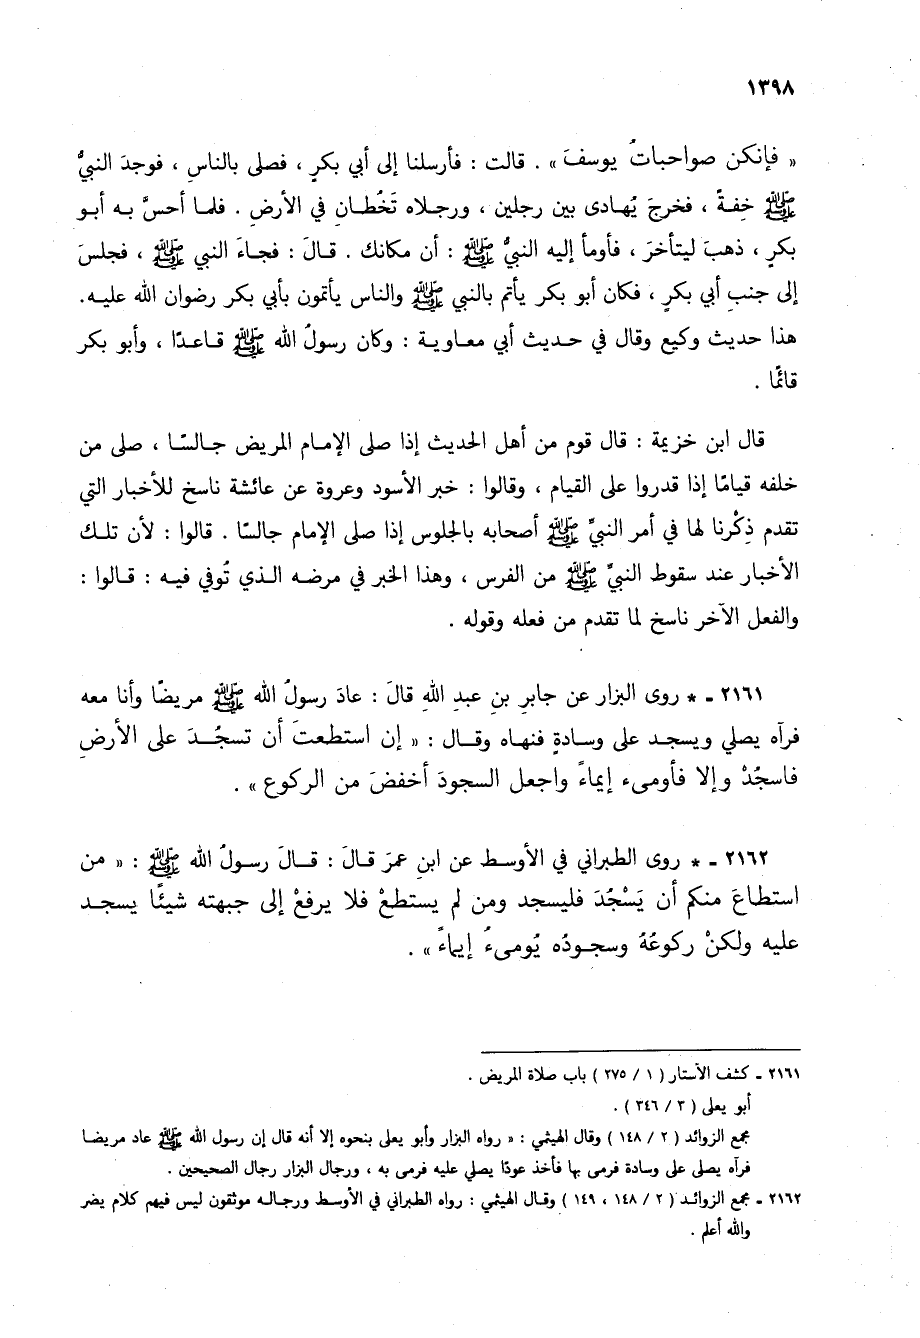 ١٣٩٨
« فإنكن صواحباتُ يوسفَ » . قالت : فأرسلنا إلى أبي بكرٍ ، فصلى بالناسِ ، فوجدَ النبيُّ
ﷺ خِفةً ، فخرجَ يُهادى بين رجلين ، ورجلاه تَخُطانِ في الأرضِ . فلما أحسَّ به أبو
بكرٍ ، ذهبَ ليتأخرَ ، فأومأ إليه النبيُّ ﷺ : أن مكانك . قالَ : فجاءَ النبي ﷺ ، فجلسَ
إلى جنبِ أبي بكرٍ ، فكان أبو بكر يأتم بالنبي ﷺ والناس يأتمون بأبي بكر رضوان الله عليه.
هذا حديث وكيع وقال في حديث أبي معاوية : وكان رسولُ الله ﷺ قاعدًا ، وأبو بكر
قائمًا .
قال ابن خزيمة : قال قوم من أهل الحديث إذا صلى الإمام المريض جالسًا ، صلى من
خلفه قيامًا إذا قدروا على القيام ، وقالوا : خبر الأسود وعروة عن عائشة ناسخ للأخبار التي
تقدم ذِكْرنا لها في أمر النبيِّ ﷺ أصحابه بالجلوس إذا صلى الإمام جالسًا . قالوا : لأن تلك
الأخبار عند سقوط النبيِّ ﷺ من الفرس ، وهذا الخبر في مرضه الذي تُوفي فيه : قالوا :
والفعل الآخر ناسخ لما تقدم من فعله وقوله .
٢١٦١ ـ * روى البزار عن جابرِ بنِ عبدِ اللهِ قالَ : عادَ رسولُ الله ﷺ مريضًا وأنا معه
فرآه يصلي ويسجد على وسادةٍ فنهاه وقال : « إن استطعتَ أن تسجُدَ على الأرضِ
فاسجُدْ وإلا فأومىء إيماءً واجعل السجودَ أخفضَ من الركوع » .
٢١٦٢ ـ * روى الطبراني في الأوسط عن ابنِ عمرَ قالَ : قالَ رسولُ الله ﷺ : « من
استطاعَ منكم أن يَسْجُدَ فليسجد ومن لم يستطعْ فلا يرفعْ إلى جبهته شيئًا يسجد
عليه ولكنْ ركوعُهُ وسجودُه يُومىءُ إيماءً » .
٢١٦١ ـ كشف الأستار ( ١ / ٢٧٥ ) باب صلاة المريض .
أبو يعلى ( ٣ / ٣٤٦ ) .
مجمع الزوائد ( ٢ / ١٤٨ ) وقال الهيثمي : « رواه البزار وأبو يعلى بنحوه إلا أنه قال إن رسول الله ﷺ عاد مريضا
فرآه يصلى على وسادة فرمى بها فأخذ عودًا يصلي عليه فرمى به ، ورجال البزار رجال الصحيحين .
٢١٦٢ ـ مجمع الزوائد ( ٢ / ١٤٨ ، ١٤٩ ) وقال الهيثمي : رواه الطبراني في الأوسط ورجاله موثقون ليس فيهم كلام يضر
والله أعلم .